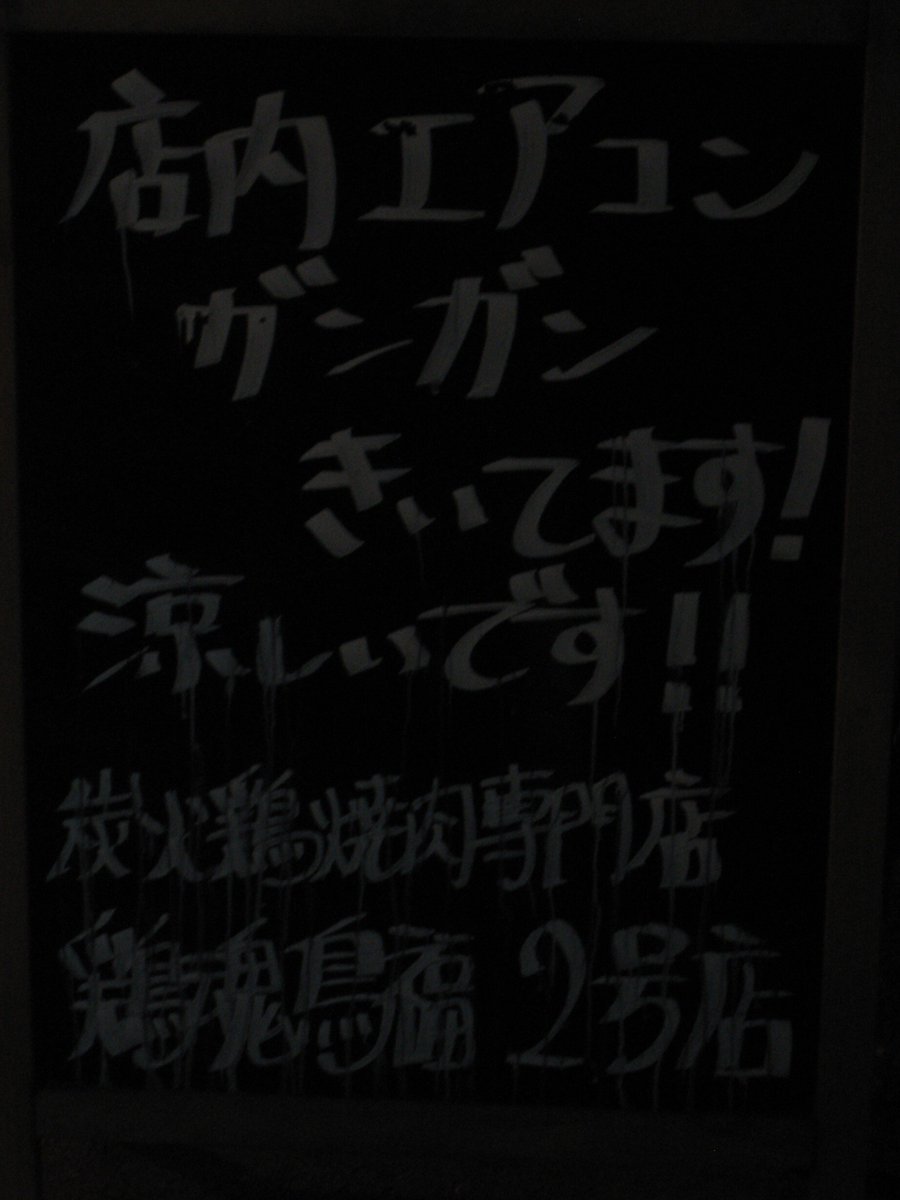 店内エアコン
ガンガン
きいてます!
涼しいです!!
炭火鶏焼肉専門店
鶏魂鳥福 2号店